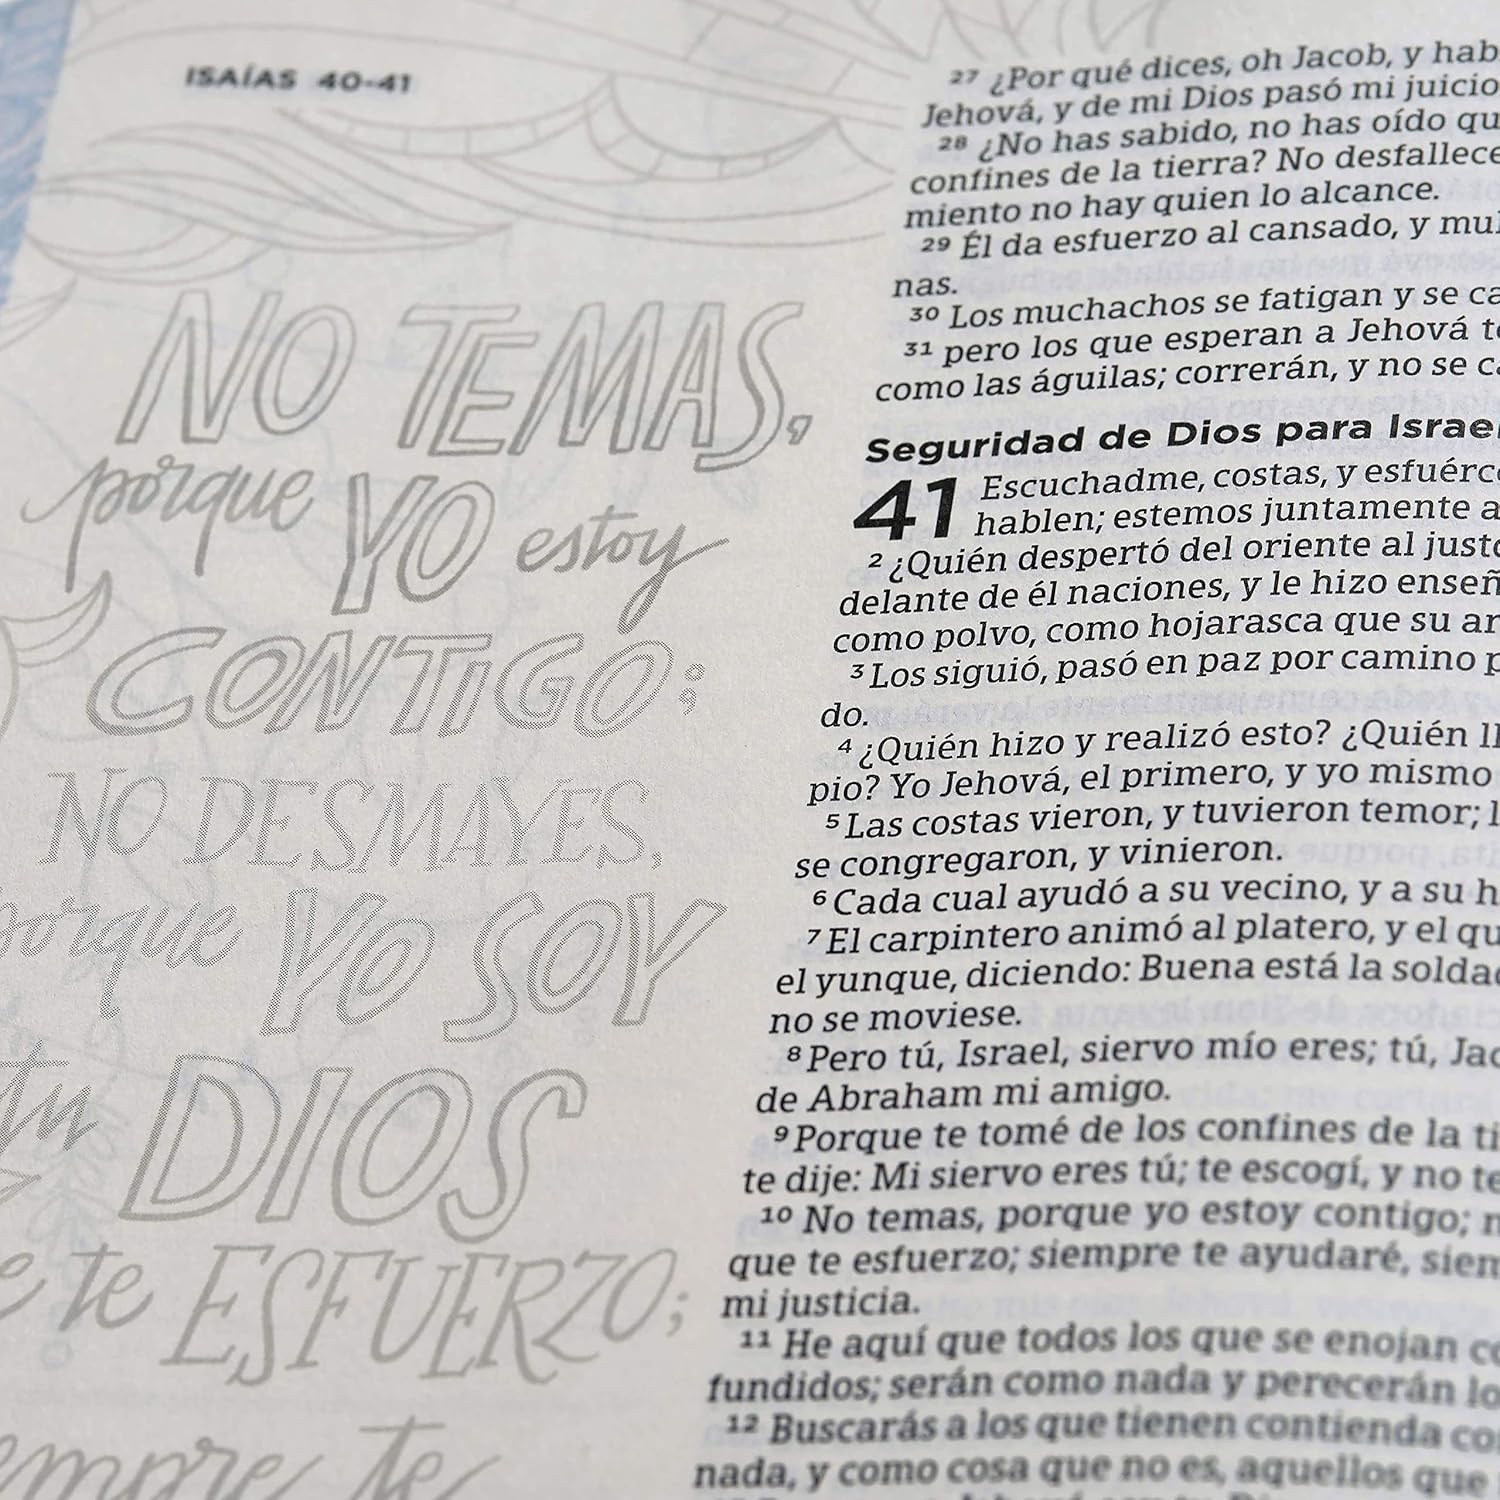 ISAÍAS 40-41
NO TEMAS,
porque YO estoy
CONTIGO;
NO DESMAYES,
porque YO SOY
tu
DIOS
te ESFUERZO;
te
27 ¿Por qué dices, oh Jacob, y hab
Jehová, y de mi Dios pasó mi juicio
28 ¿No has sabido, no has oído qu
confines de la tierra? No desfallece
miento no hay quien lo alcance.
29 Él da esfuerzo al cansado, y mul
nas.
30 Los muchachos se fatigan y se ca
31 pero los que esperan a Jehová t
como las águilas; correrán, y no se ca
Seguridad de Dios para Israel
41 Escuchadme, costas, y esfuérc
hablen; estemos juntamente a
2 ¿Quién despertó del oriente al justo
delante de él naciones, y le hizo enseñ
como polvo, como hojarasca que su ar
3 Los siguió, pasó en paz por camino p
do.
4 ¿Quién hizo y realizó esto? ¿Quién ll
pio? Yo Jehová, el primero, y yo mismo
5 Las costas vieron, y tuvieron temor; l
se congregaron, y vinieron.
6 Cada cual ayudó a su vecino, y a su h
7 El carpintero animó al platero, y el qu
el yunque, diciendo: Buena está la soldad
no se moviese.
8 Pero tú, Israel, siervo mío eres; tú, Jac
de Abraham mi amigo.
9 Porque te tomé de los confines de la ti
te dije: Mi siervo eres tú; te escogí, y no te
10 No temas, porque yo estoy contigo; n
que te esfuerzo; siempre te ayudaré, siem
mi justicia.
11 He aquí que todos los que se enojan co
fundidos; serán como nada y perecerán lo
12 Buscarás a los que tienen contienda co
nada, y como cosa que no es, aquellos que